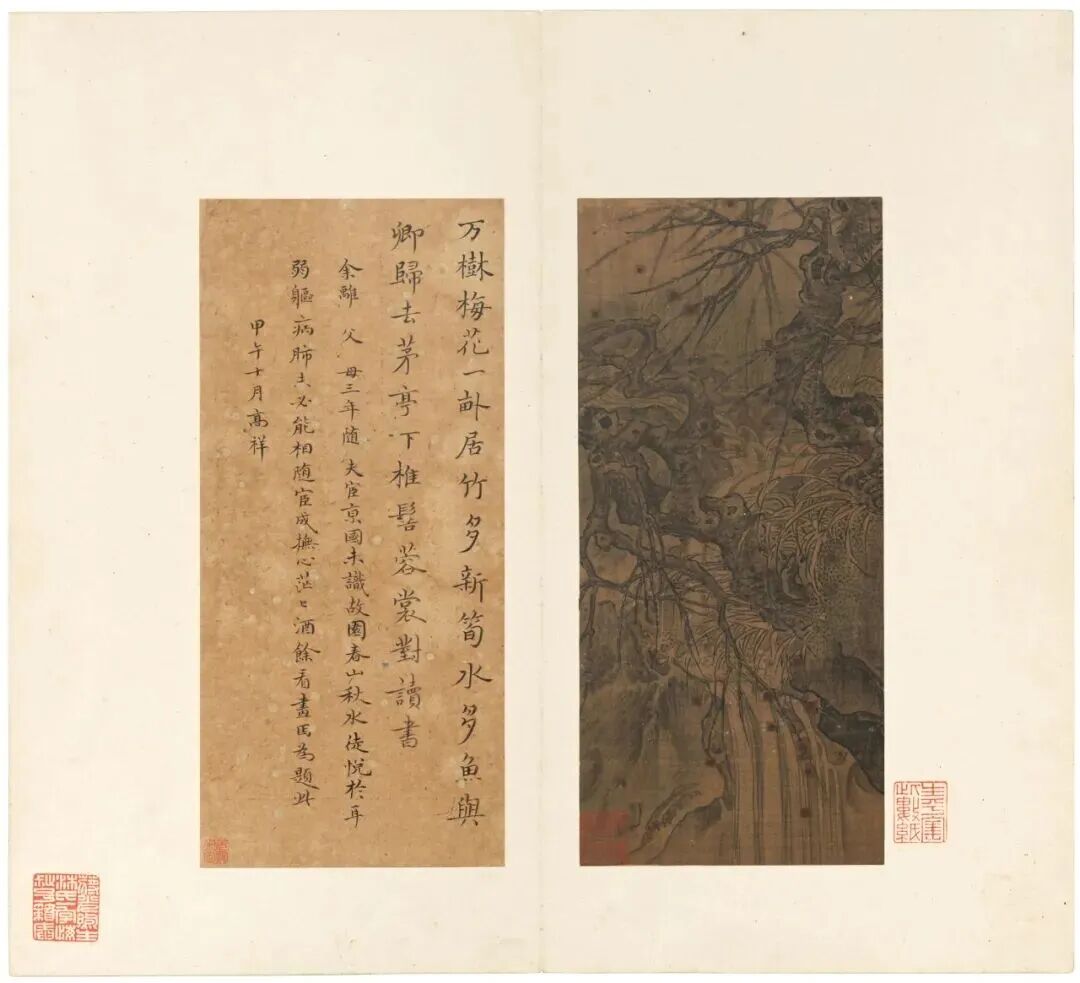 万樹梅花一畝居竹多新筍水多魚與
卿歸去茅亭下椎髻蓉裳對讀書
余離 父 母三年随 夫宦京國未識故園春山秋水徒悦於耳
弱軀病肺未必能相随宦成撫心茫〻酒餘看畫因為題此
甲午十月高祥